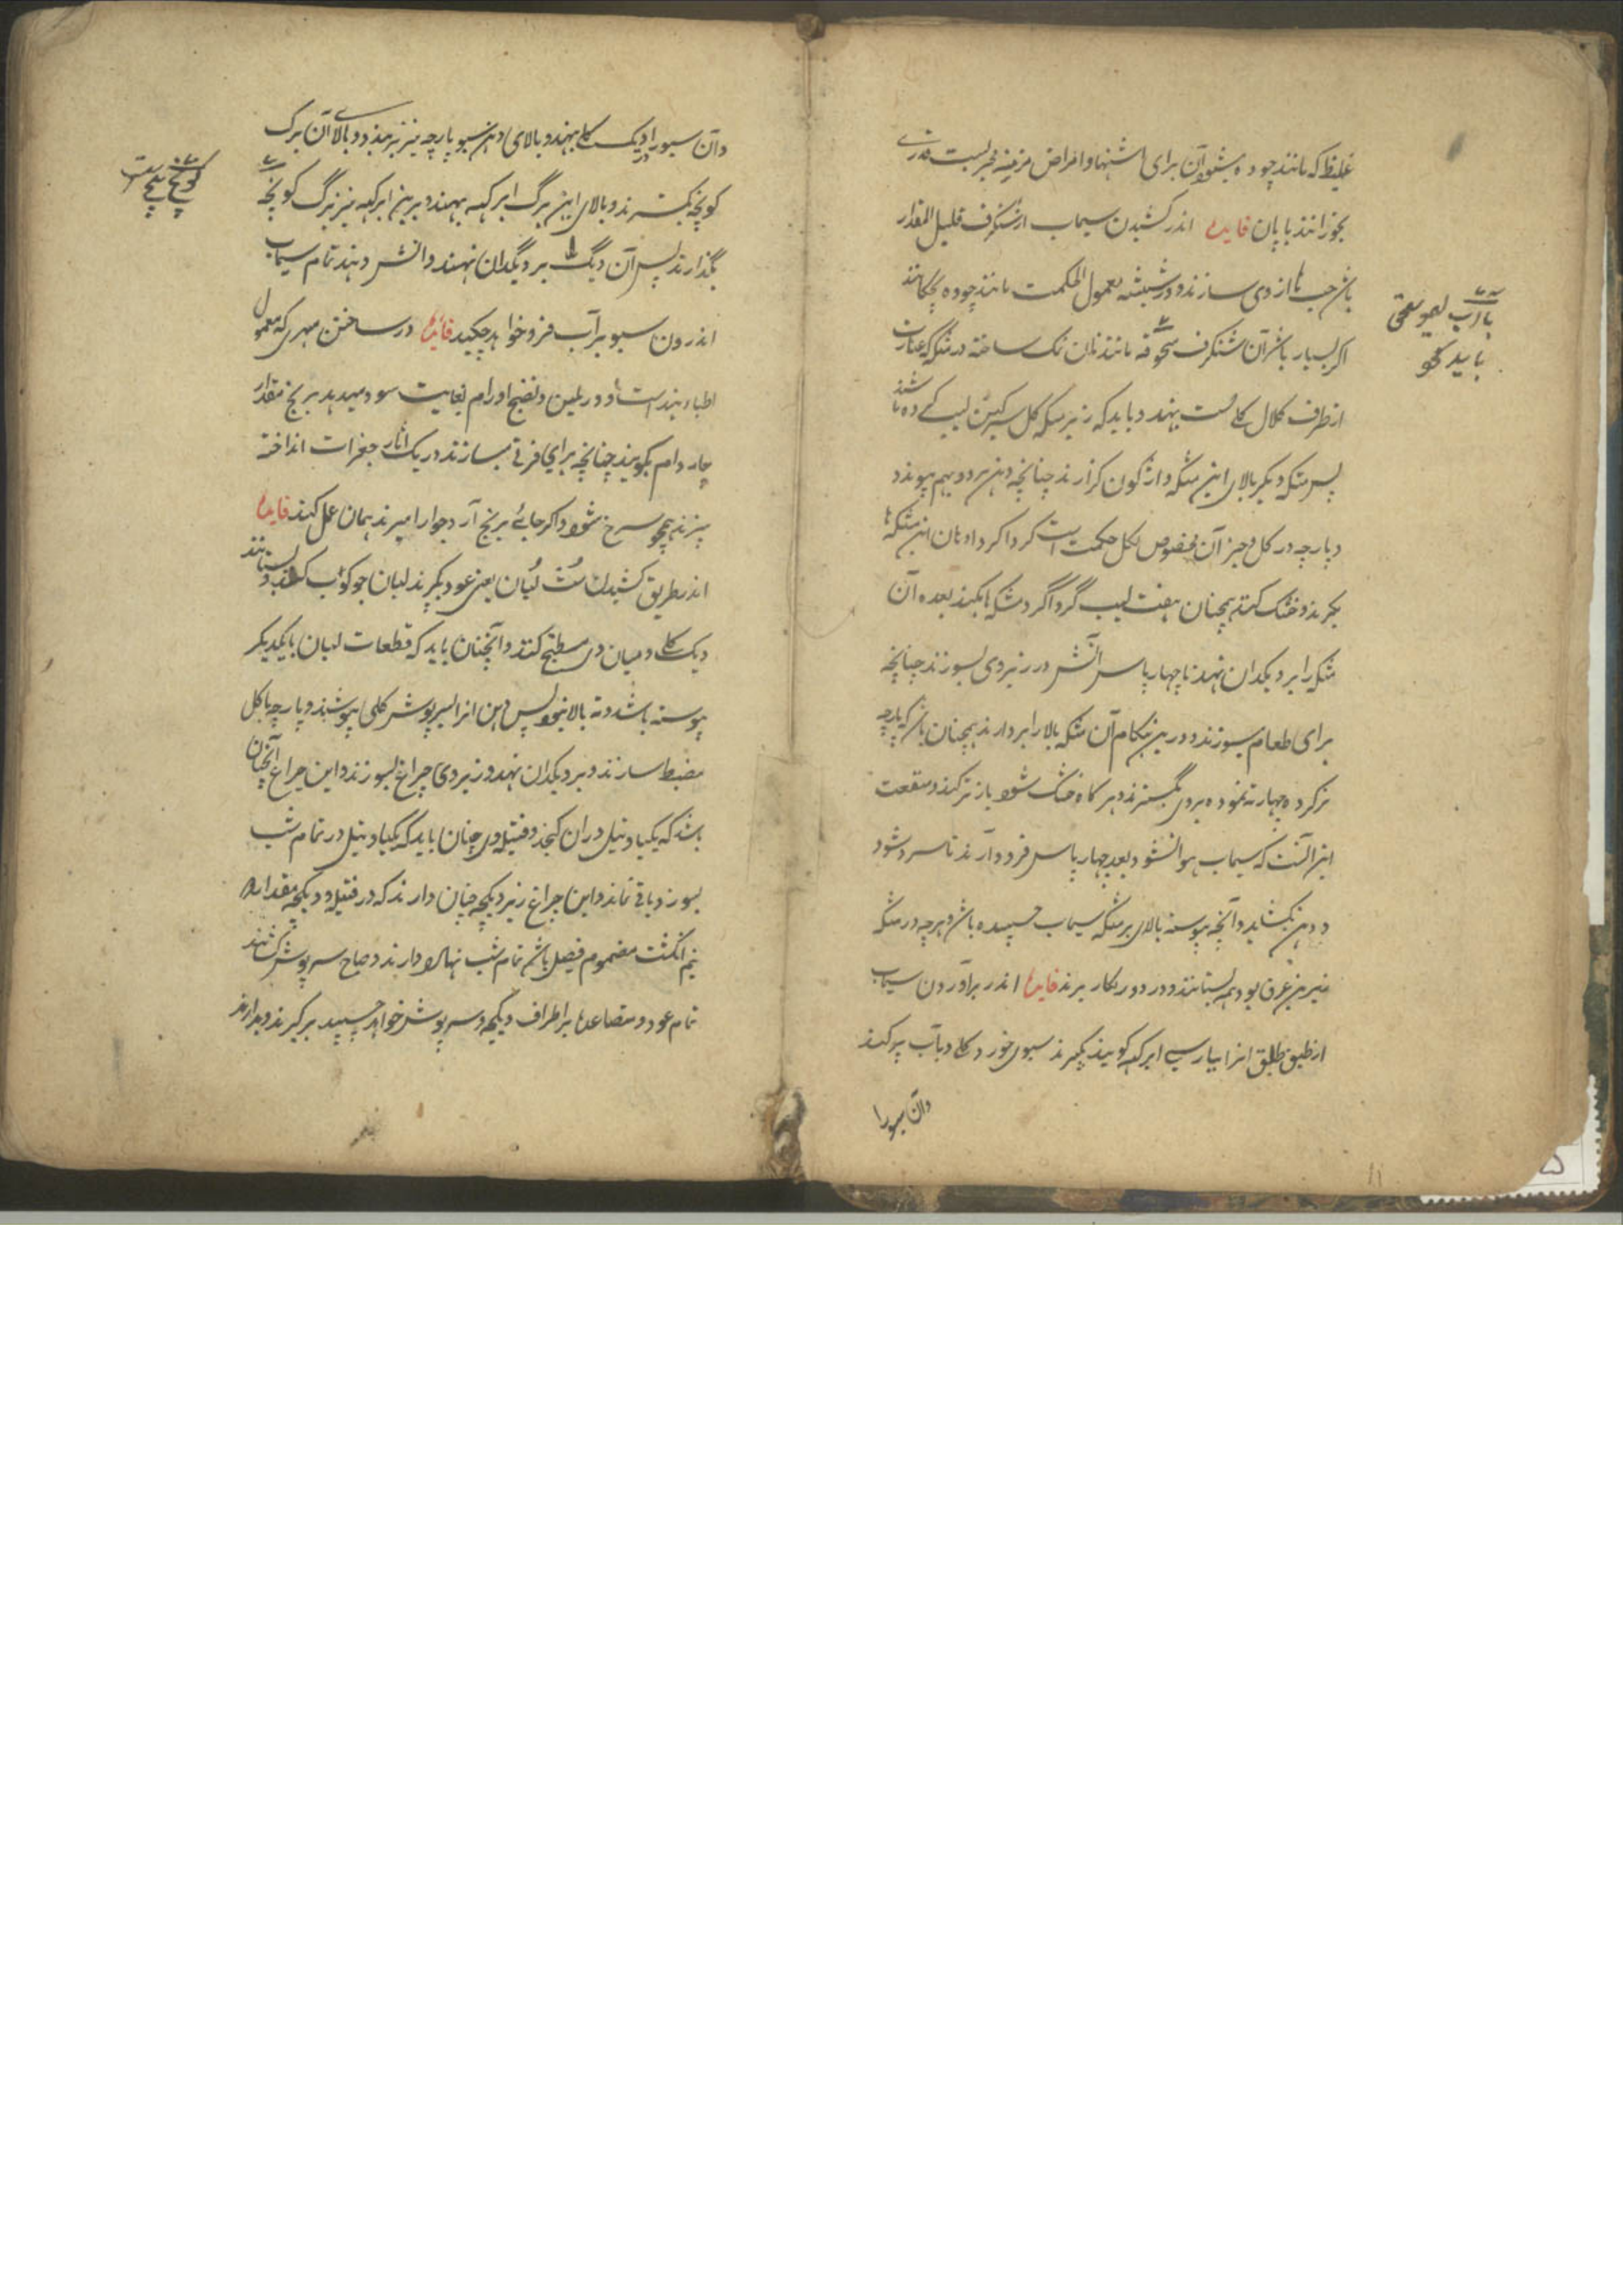 غلیظ که مانند چوده بشود آن برای اشتها و امراض مزمنه مجربست قدری
بخورانند با پان فایده اندر کشیدن سیماب از شنگرف قلیل المقدار
باشد حب ها از وی سازند و در شیشه معمول الحکمت مانند چوده بچکانند
اگر بسیار باشد آن شنگرف مسحوقه مانند نان تنک ساخته در متکه که عبارت
از ظرف کلال کلی است بنهند و باید که زیر متکه گل سرگین لیپ کرده باشند
پس متکه دیگر بالای این متکه واژگون گذارند چنانچه دهن هر دو بهم پیوندد
و پارچه در گل و جز آن مخصوص بگل حکمت است گرداگرد دهان این متکه ها
بگیرند و خشک کنند همچنان هفت لیپ گرداگرد متکه ها بکنند بعده آن
متکه را بر دیگدان نهند تا چهار پاس آتش در زیر وی بسوزند چنانچه
برای طعام میسوزند و درین هنگام آن متکه بالا را بردارند همچنان باشد که پارچه
تر کرده چهار ته نموده بر وی بگسترند و هر گاه خشک شود باز تر کنند و منفعت
این آنست که سیماب هوا نشود و بعد چهار پاس فرود آرند تا سرد شود
و دهن بکشاید و آنچه پیوسته بالای بر متکه سیماب چسپیده باشد و هر چه در متکه
زیرین غرق بود همه بستانند و در دور بکار برند فایده اندر برآوردن سیماب
از طبق طلق انرا بپارسی ابرکه گویند بگیرند سبوی خورد کلی و بآب پر کنند
وآن سبو را
با آب لیمو سعی
باید کو
وآن سبو را در دیگ کلی بنهند و بالای دهن سبو پارچه نیز بربندند و بالای آن برگ
کونچه بگسترند و بالای این برگ ابرکهه بنهند و برین ابرکهه نیز برگ کونچه
بگذارند پس آن دیگ را بر دیگدان نهند و آتش دهند تمام سیماب
اندرون سبو بر آب فرو خواهد چکید فایده در ساختن مهری که معمول
اطباء هند است و در تلیین و نضج اورام بغایت سود میدهد برنج مقدار
چار دام بگویند چنانچه برای فرنی میسازند در یک آثار جغرات انداخته
بپزند همچو سرخ شود و اگر جای برنج آرد جوار امیزند همان عمل کند فایده
اندر طریق کشیدن ست لبان یعنی عود بگیرند لبان جو کوب کنند و بستانند
دیگ کلی و میان وی مسطح کنند و آنچنان باید که قطعات لبان بایکدیگر
پیوسته باشد و ته بالا نبود پس دهن انرا بسرپوش کلی بپوشند و پارچه با گل
مضبط سازند و بر دیگدان نهند و زیر وی چراغ بسوزند و این چراغ آنچنان
باشد که یکپاو تیل دران گنجد و فتیله وی چنان باید که یکپاو تیل در تمام شب
بسوزد و باقی نماند و این چراغ زیر دیگچه چنان دارند که در فتیله و دیگچه مقدار
نیم انگشت مضموم فیصل باشد تمام شب نهاده دارند و صباح سرپوش کشند
تمام عود و متصاعد بر اطراف دیگچه و سرپوش خواهد چسپید برگیرند و بدارند